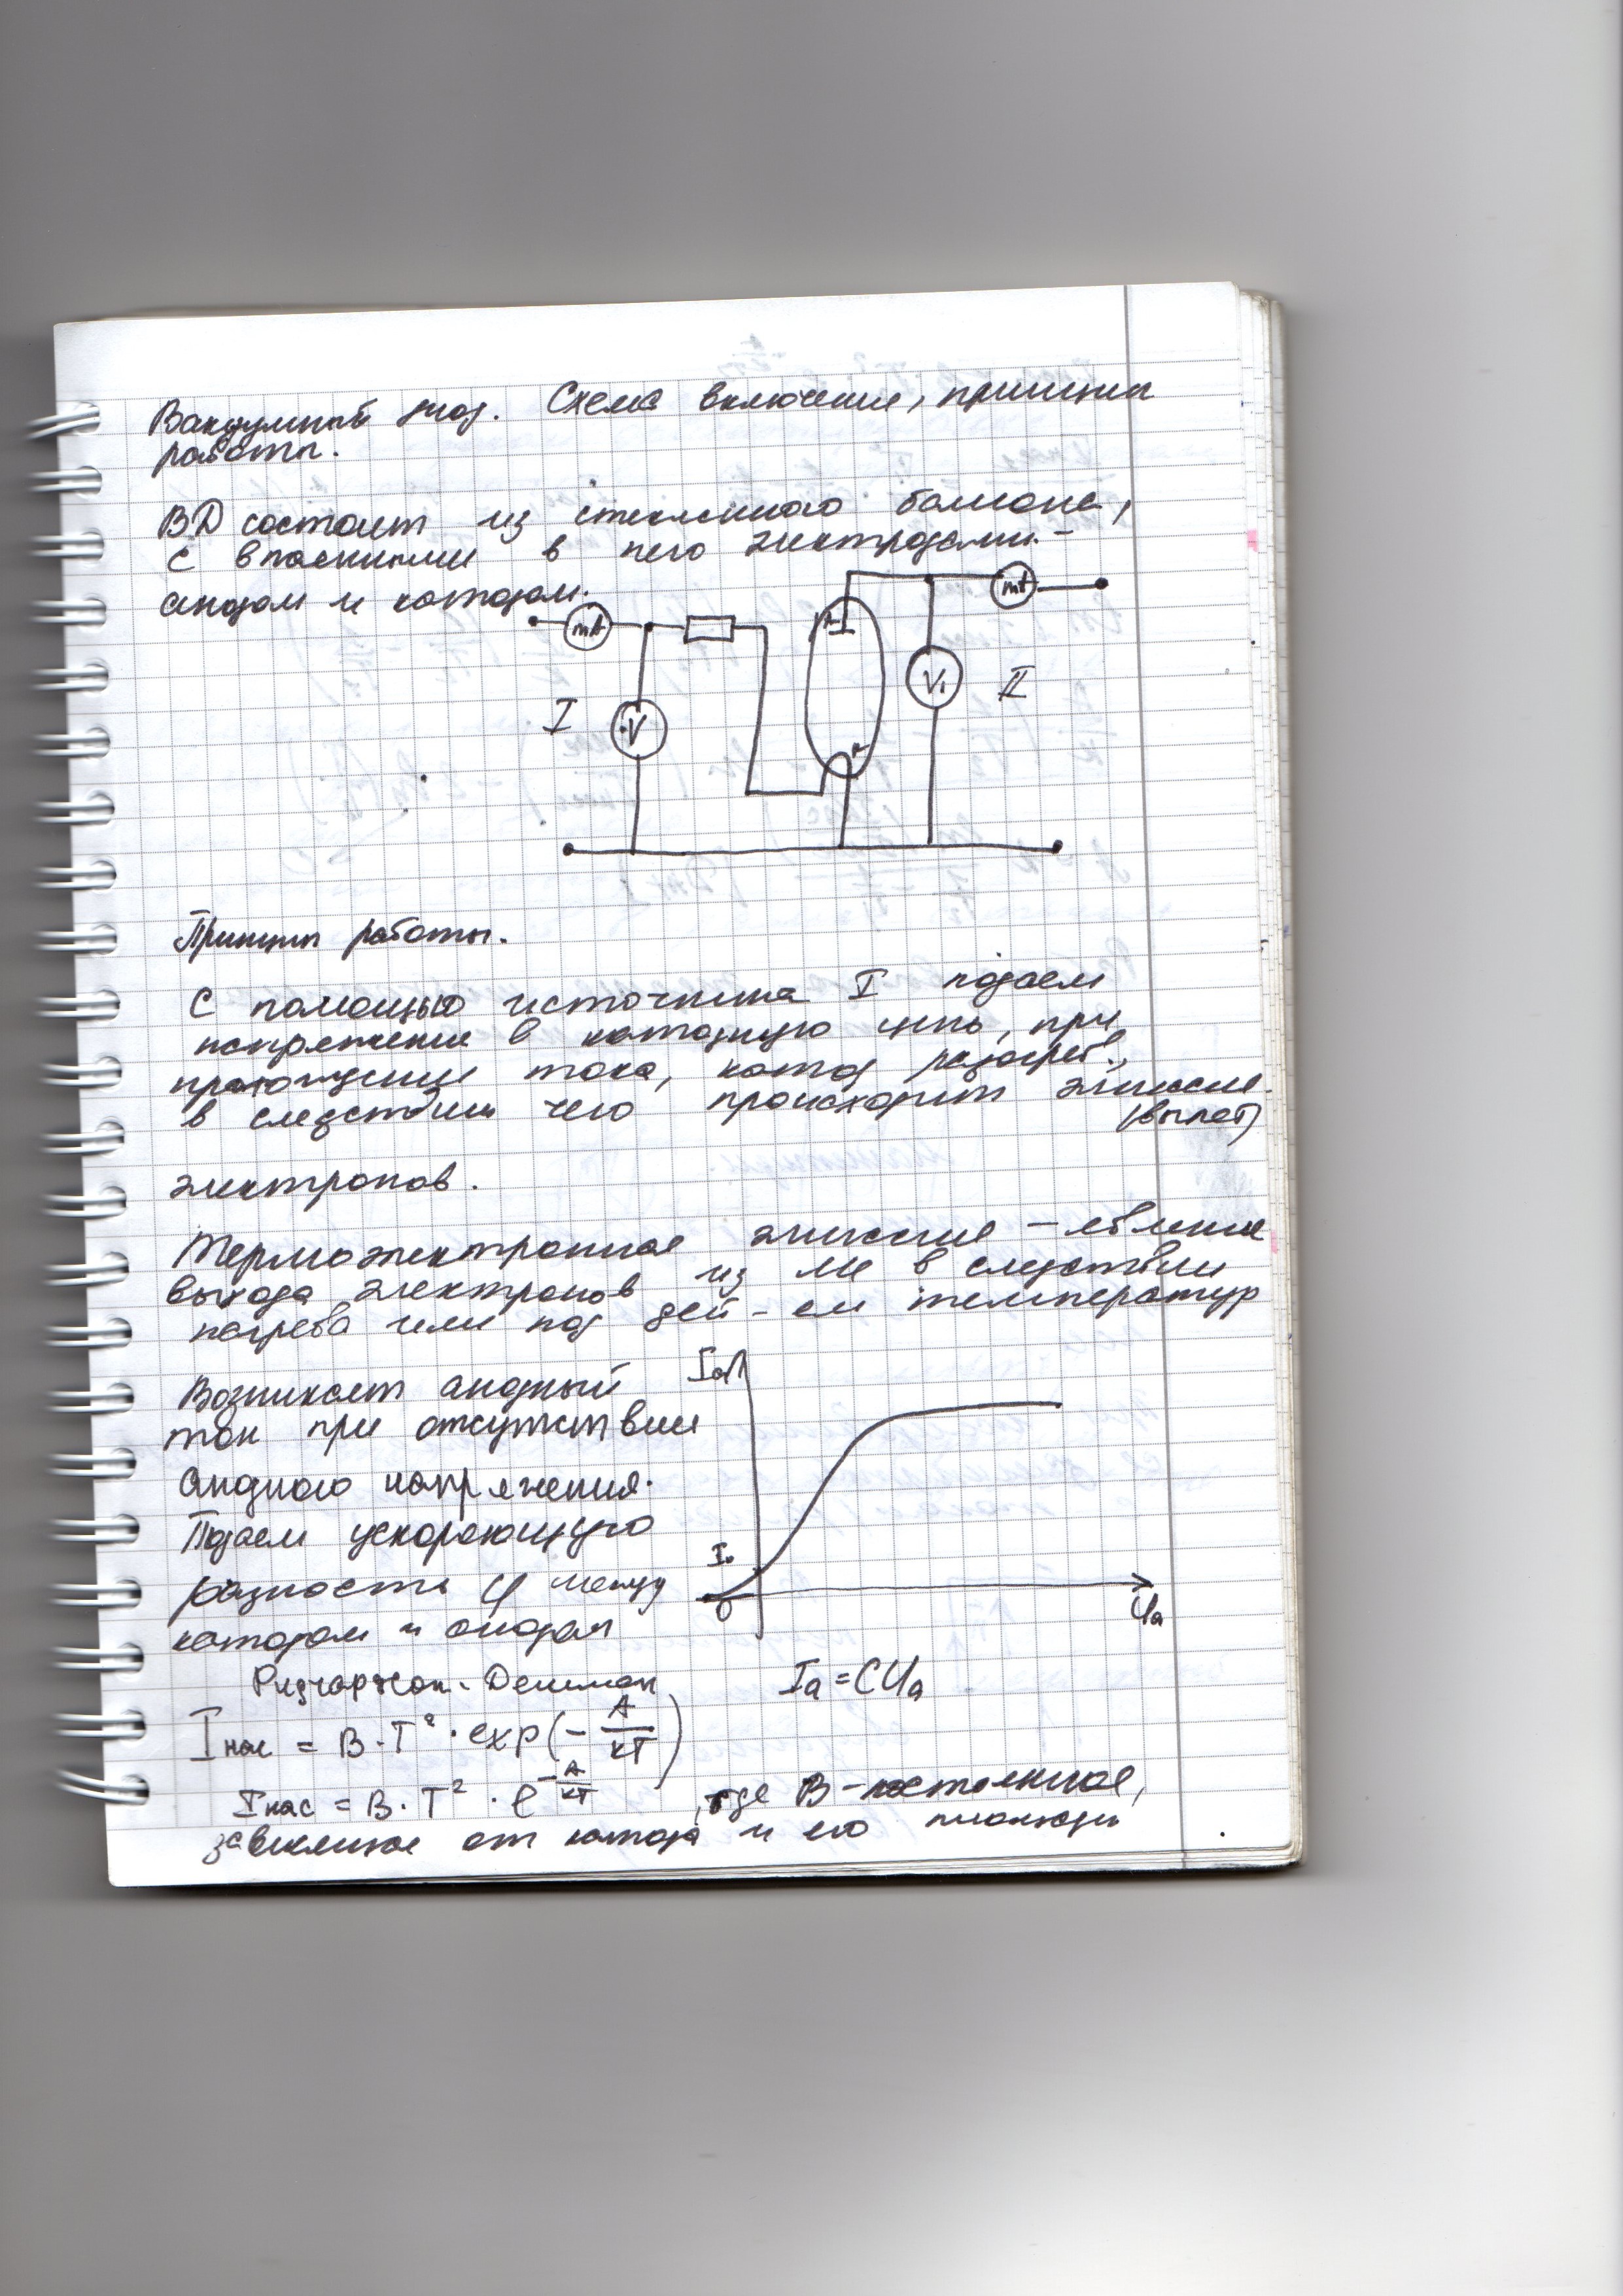 Вакуумный диод. Схема включения, принцип
работы.
ВД состоит из стеклянного баллона,
с впаянными в него электродами -
анодом и катодом.
mA
mA
A
V
V₁
I
II
К
Принцип работы.
С помощью источника I подаем
напряжение в катодную цепь, при
прохождении тока, катод разогрев.,
в следствии чего происходит эмиссия
(вылет)
электронов.
Термоэлектронная эмиссия - явление
выхода электронов из Ме в следствии
нагрева или под дей-ем температур
Возникает анодный
ток при отсутствии
анодного напряжения.
Подаем ускоряющую
разность φ между
катодом и анодом
Iа
I₀
0
Uа
Ричардсон-Дешман
Iа = CUа
Iнас = B·T²·exp(-A/кТ)
Iнас = B·T²·e^(-A/кТ), где B - постоянная,
зависимая от катода и его площади